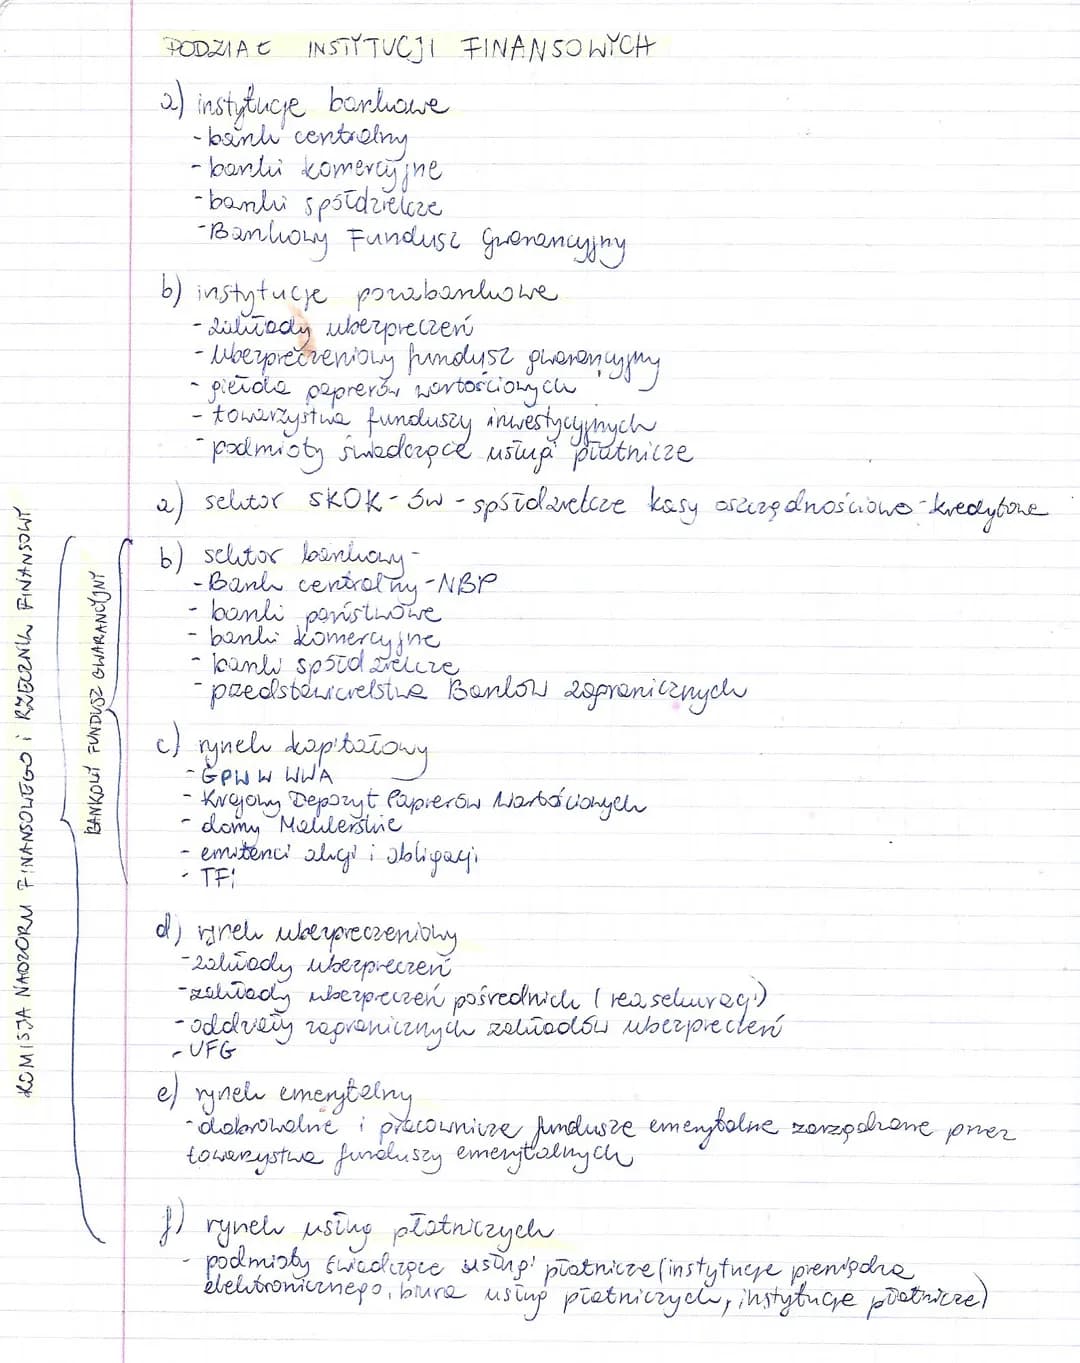 PODZIAŁ INSTYTUCJI FINANSOWYCH
a) instytucje bankowe
- bank centralny
- banki komercyjne
- banki spółdzielcze
- Bankowy Fundusz Gwarancyjny
b) instytucje pozabankowe
- zakłady ubezpieczeń
- Ubezpieczeniowy fundusz gwarancyjny
- giełda papierów wartościowych
- towarzystwa funduszy inwestycyjnych
- podmioty świadczące usługi płatnicze
a) sektor SKOK-ów - spółdzielcze kasy oszczędnościowo-kredytowe
b) sektor bankowy -
- Bank centralny - NBP
- banki państwowe
- banki komercyjne
- banki spółdzielcze
- przedstawicielstwa Banków zagranicznych
c) rynek kapitałowy
- GPW W WWA
- Krajowy Depozyt Papierów Wartościowych
- domy Maklerskie
- emitenci akcji i obligacji
- TFi
d) rynek ubezpieczeniowy
- zakłady ubezpieczeń
- zakłady ubezpieczeń pośrednich (reasekuracji)
- oddziały zagranicznych zakładów ubezpieczeń
- UFG
e) rynek emerytalny
- dobrowolne i pracownicze fundusze emerytalne zarządzane przez
towarzystwa funduszy emerytalnych
f) rynek usług płatniczych
- podmioty świadczące usługi płatnicze (instytucje pieniądza
elektronicznego, biura usług płatniczych, instytucje płatnicze)
BANKOWY FUNDUSZ GWARANCYJNY
KOMISJA NADZORU FINANSOWEGO i RZECZNIK FINANSOWY